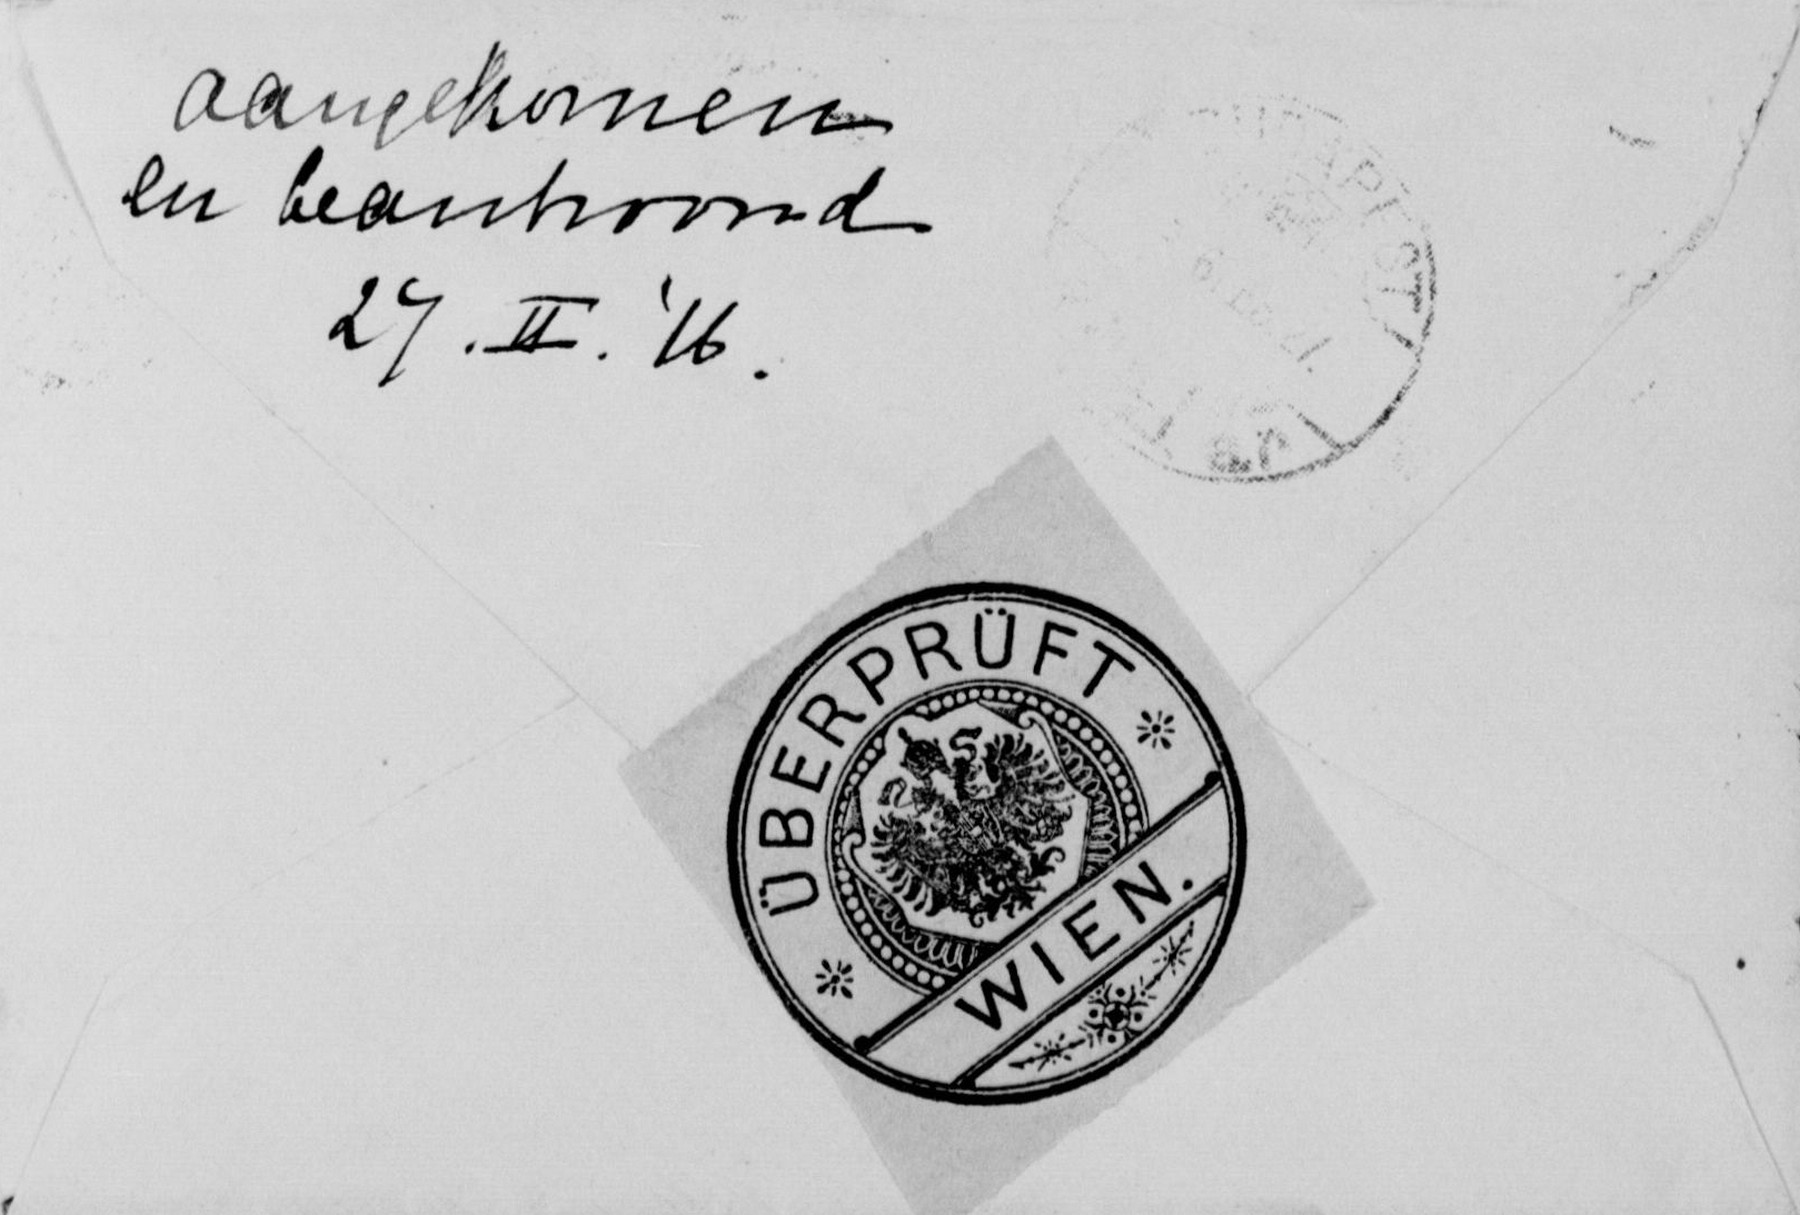 aangekomen
en beantwoord
27. II. '16.
ÜBERPRÜFT
WIEN.